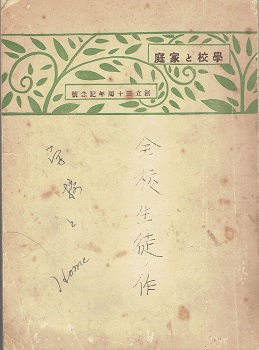 學校と家庭
創立三十周年記念號
全校生徒ノ作
学校と
Home